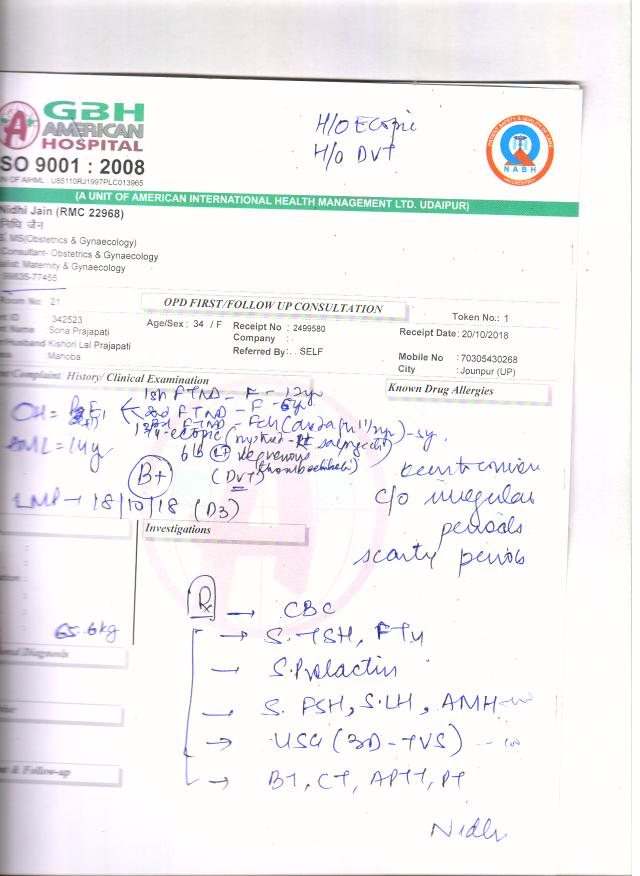 GBH
AMERICAN
HOSPITAL
SO 9001 : 2008
N OF AIHML : U85110RJ1997PLC013965
H/O Ectopic
H/O DVT
NABH
(A UNIT OF AMERICAN INTERNATIONAL HEALTH MANAGEMENT LTD. UDAIPUR)
Nidhi Jain (RMC 22968)
निधि जैन
MS(Obstetrics & Gynaecology)
Consultant- Obstetrics & Gynaecology
Maternity & Gynaecology
99835-77455
Room No: 21
OPD FIRST/FOLLOW UP CONSULTATION
Token No.: 1
ID 342523
Age/Sex : 34 / F
Receipt No : 2499580
Receipt Date: 20/10/2018
Name : Sona Prajapati
Company : .
Husband Kishori Lal Prajapati
Referred By: . SELF
Mobile No :70305430268
Mahoba
City : Jpunpur (UP)
nt/Complaint History/ Clinical Examination
Known Drug Allergies
1st FTND - F - 12y
OH =
2nd FTND - F - 6y
3rd FTND - FCH
- 5y.
ectopic
B+
(DVT)
LMP → 18/10/18 (D3)
c/o irregular
periods
scanty periods
Investigations
65.6kg
Rx → CBC
→ S. TSH, FT4
— S. Prolactin
→ S. FSH, S. LH, AMH
→ USG (3D-TVS)
→ BT, CT, APTT, PT
nal Diagnosis
nt & Follow-up
Nidhi